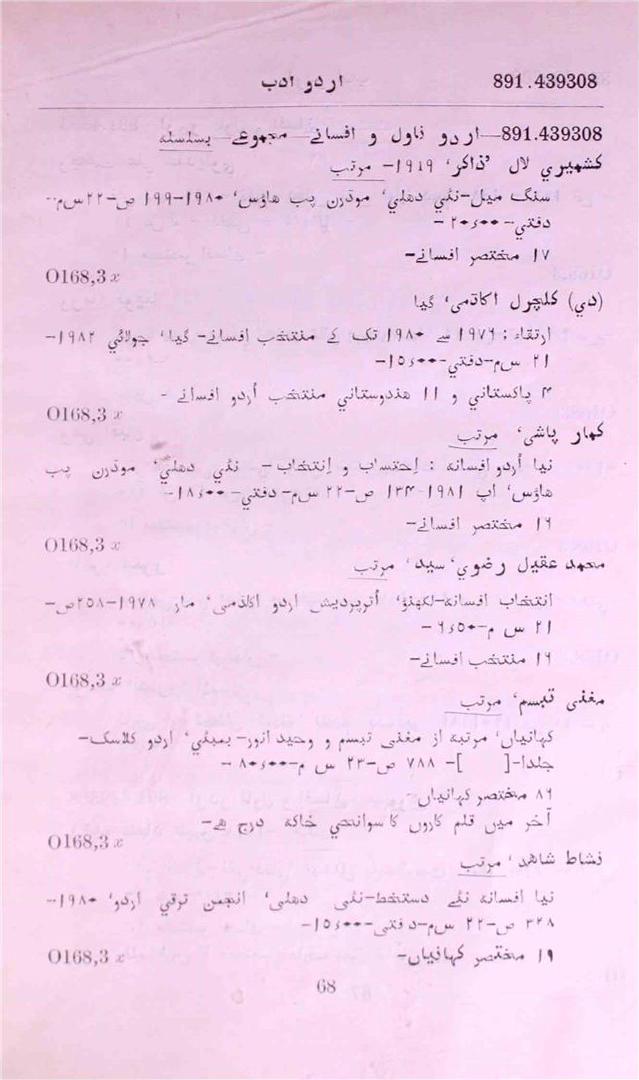 891.439308 اردو ادب
891.439308—اردو ناول و افسانے— مجموعے— بسلسلہ
کشمیری لال ’ذاکر‘ ۱۹۱۹- مرتب
سنگ میل-نئی دھلی‘ موڈرن پب ھاؤس‘ ۱۹۸۰-۱۹۹ ص-۲۲س م-
دفتی-۲۰ء۰۰-
۱۷ مختصر افسانے-
O168,3 x
(دی) کلچرل اکاڈمی‘ گیا
ارتقاء : ۱۹۷۶ سے ۱۹۸۰ تک کے منتخب افسانے- گیا‘ جولائی ۱۹۸۲-
۲۱ س م-دفتی-۱۵ء۰۰-
۴ پاکستانی و ۱۱ ھندوستانی منتخب اُردو افسانے -
O168,3 x
کمار پاشی‘ مرتب
نیا اُردو افسانہ : اِحتساب و اِنتخاب- نئی دھلی‘ موڈرن پب
ھاؤس‘ اپ ۱۹۸۱-۱۳۴ ص-۲۲ س م- دفتی-۱۸ء۰۰-
۱۶ مختصر افسانے-
O168,3 x
محمد عقیل رضوی‘ سید‘ مرتب
انتخاب افسانہ-لکھنؤ‘ اُترپردیش اردو اکاڈمی‘ مار ۱۹۷۸-۲۵۸ص-
۲۱ س م-۶ء۵۰-
۱۶ منتخب افسانے-
O168,3 x
مغنی تبسم‘ مرتب
کہانیاں‘ مرتبہ از مغنی تبسم و وحید انور- بمبئی‘ اردو کلاسک-
جلدا-[ ]- ۷۸۸ ص-۲۳ س م-۸۰ء۰۰ -
۸۶ مختصر کہانیاں-
آخر میں قلم کاروں کا سوانحی خاکہ درج ھے-
O168,3 x
نشاط شاھد‘ مرتب
نیا افسانہ نئے دستخط-نئی دھلی‘ انجمن ترقی اردو‘ ۱۹۸۰-
۳۲۸ ص-۲۲ س م-دفتی-۱۵ء۰۰-
۱۹ مختصر کہانیاں-
O168,3 x
68